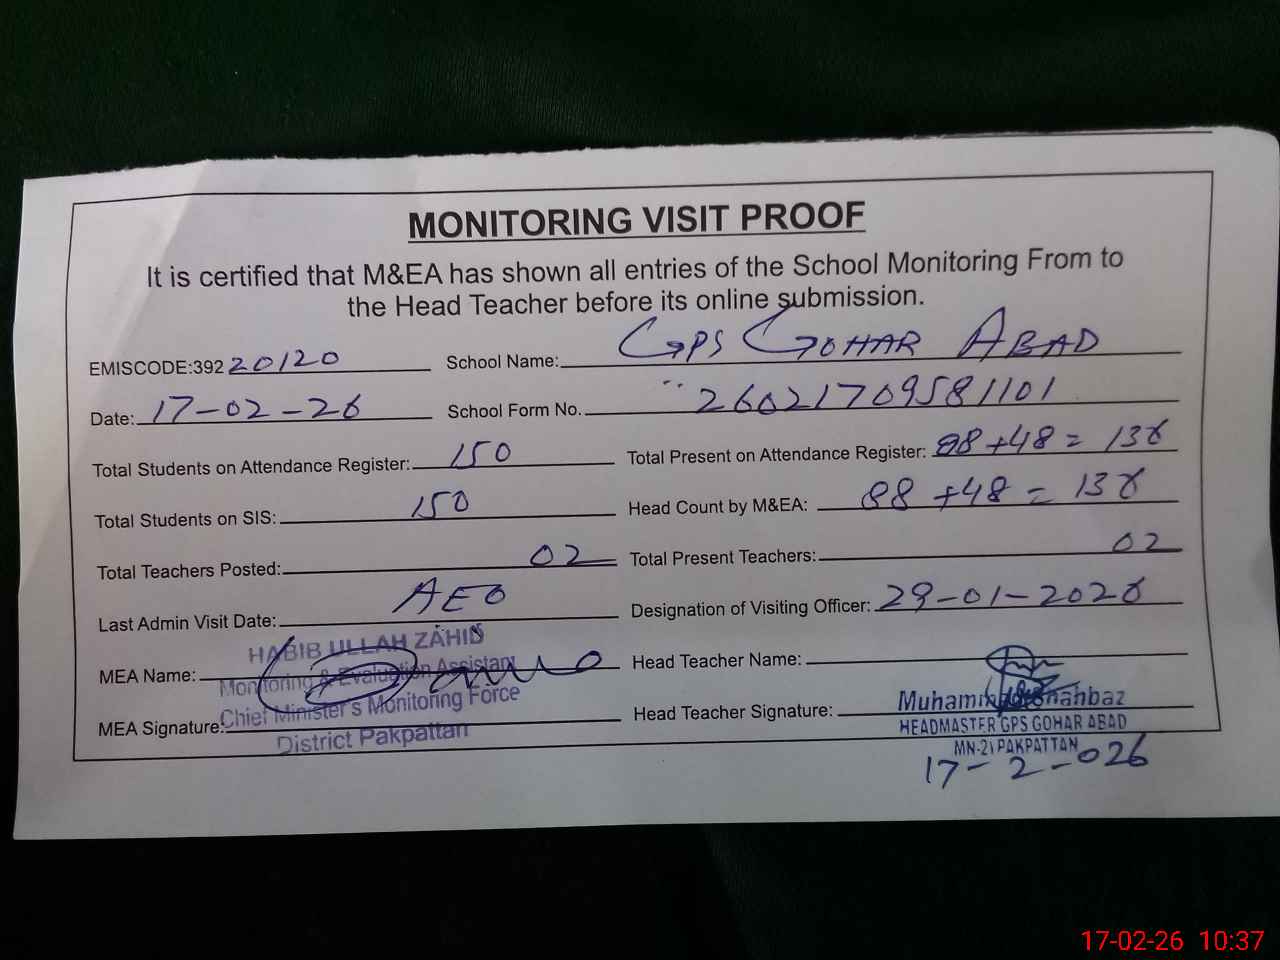 MONITORING VISIT PROOF
It is certified that M&EA has shown all entries of the School Monitoring From to
the Head Teacher before its online submission.
EMISCODE:39220120 School Name: GPS GOHAR ABAD
Date: 17-02-26 School Form No. 26021709581101
Total Students on Attendance Register: 150 Total Present on Attendance Register: 88+48=136
Total Students on SIS: 150 Head Count by M&EA: 88+48=136
Total Teachers Posted: 02 Total Present Teachers: 02
Last Admin Visit Date: AEO Designation of Visiting Officer: 29-01-2026
HABIB ULLAH ZAHID
MEA Name: Head Teacher Name:
Monitoring & Evaluation Assistant
Chief Minister's Monitoring Force
MEA Signature: Head Teacher Signature:
District Pakpattan
Muhammad Shahbaz
HEADMASTER GPS GOHAR ABAD
MN-21 PAKPATTAN
17-2-026
17-02-26 10:37